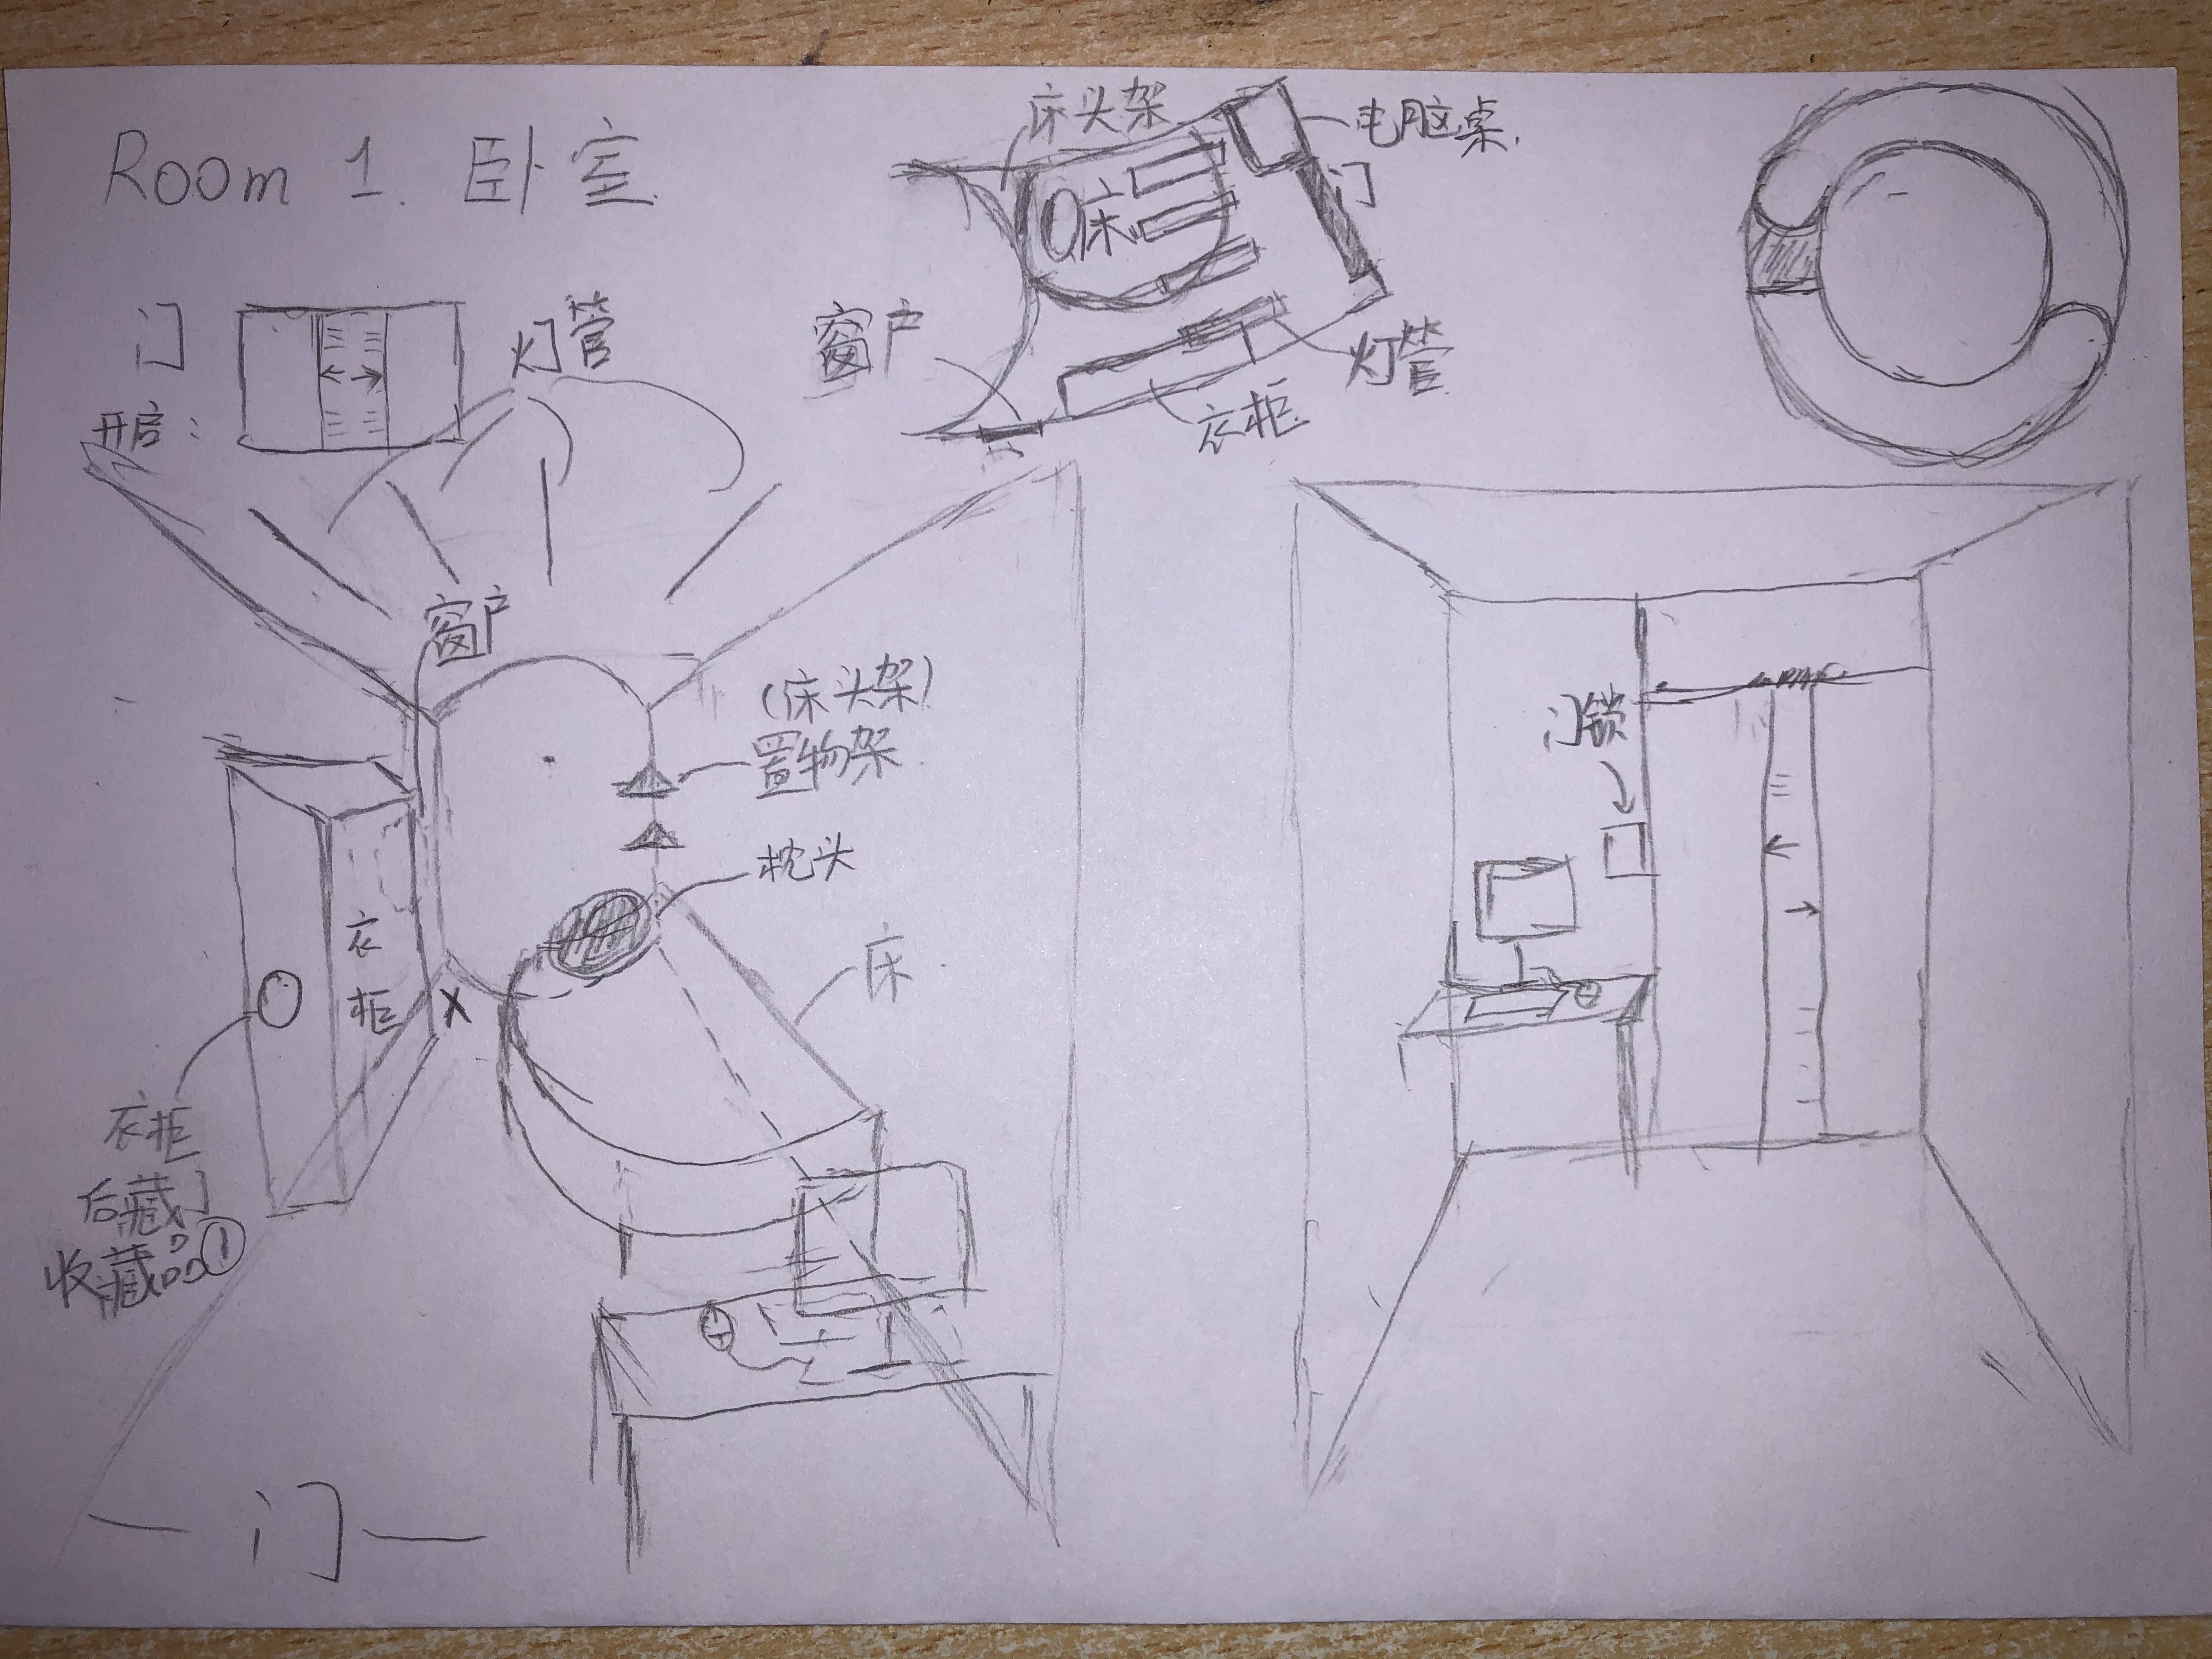 Room 1. 卧室
床头架
电脑桌.
门
床
窗户
灯管
衣柜
门
开启:
灯管
窗户
(床头架)
置物架
枕头
床
衣柜
衣柜
后藏
收藏品①
门
门锁